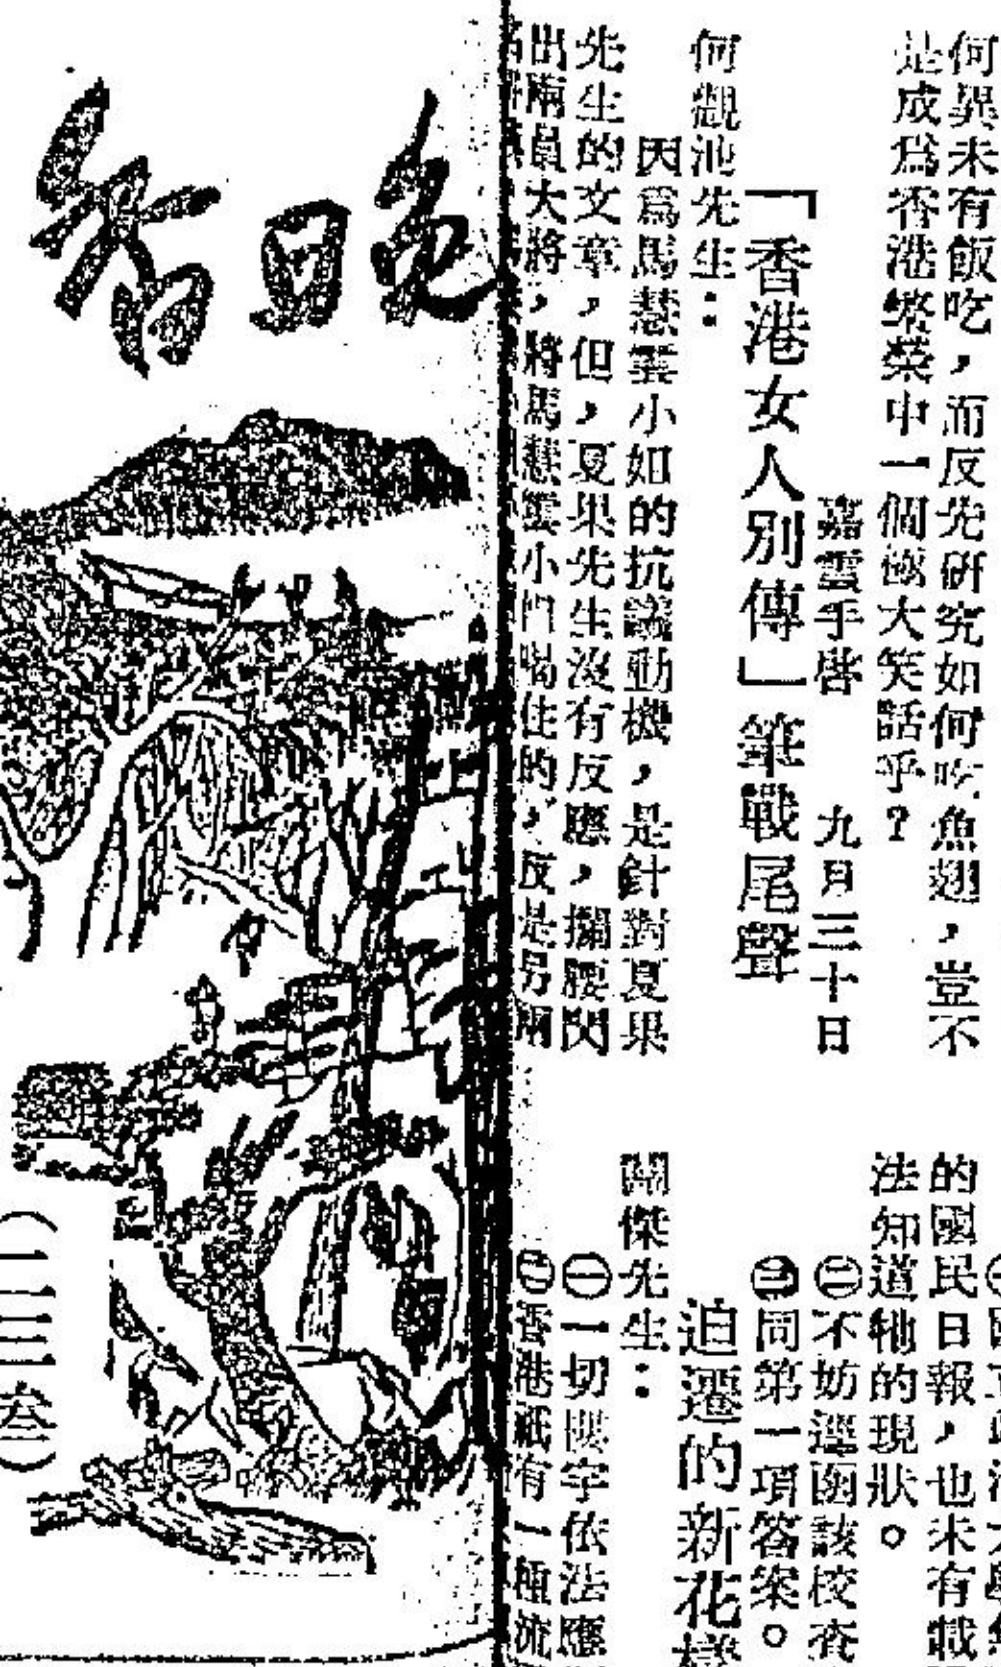 何異未有飯吃，而反先研究如何吃魚翅，豈不
是成爲香港繁榮中一個極大笑話乎？
嘉雲手啓　九月三十日
「香港女人別傳」筆戰尾聲
何觀池先生：
因爲馬慧雲小姐的抗議動機，是針對夏果
先生的文章，但，夏果先生沒有反應，攔腰閃
出兩員大將，將馬慧雲小姐喝住的，反是另兩
的國民日報，也未有載
法知道牠的現狀。
㊁不妨逕函該校查
㊂同第一項答案。
迫遷的新花樣
關傑先生：
㊀一切樓宇依法應
㊁香港祇有一種流
晚日香
（一三三叁）